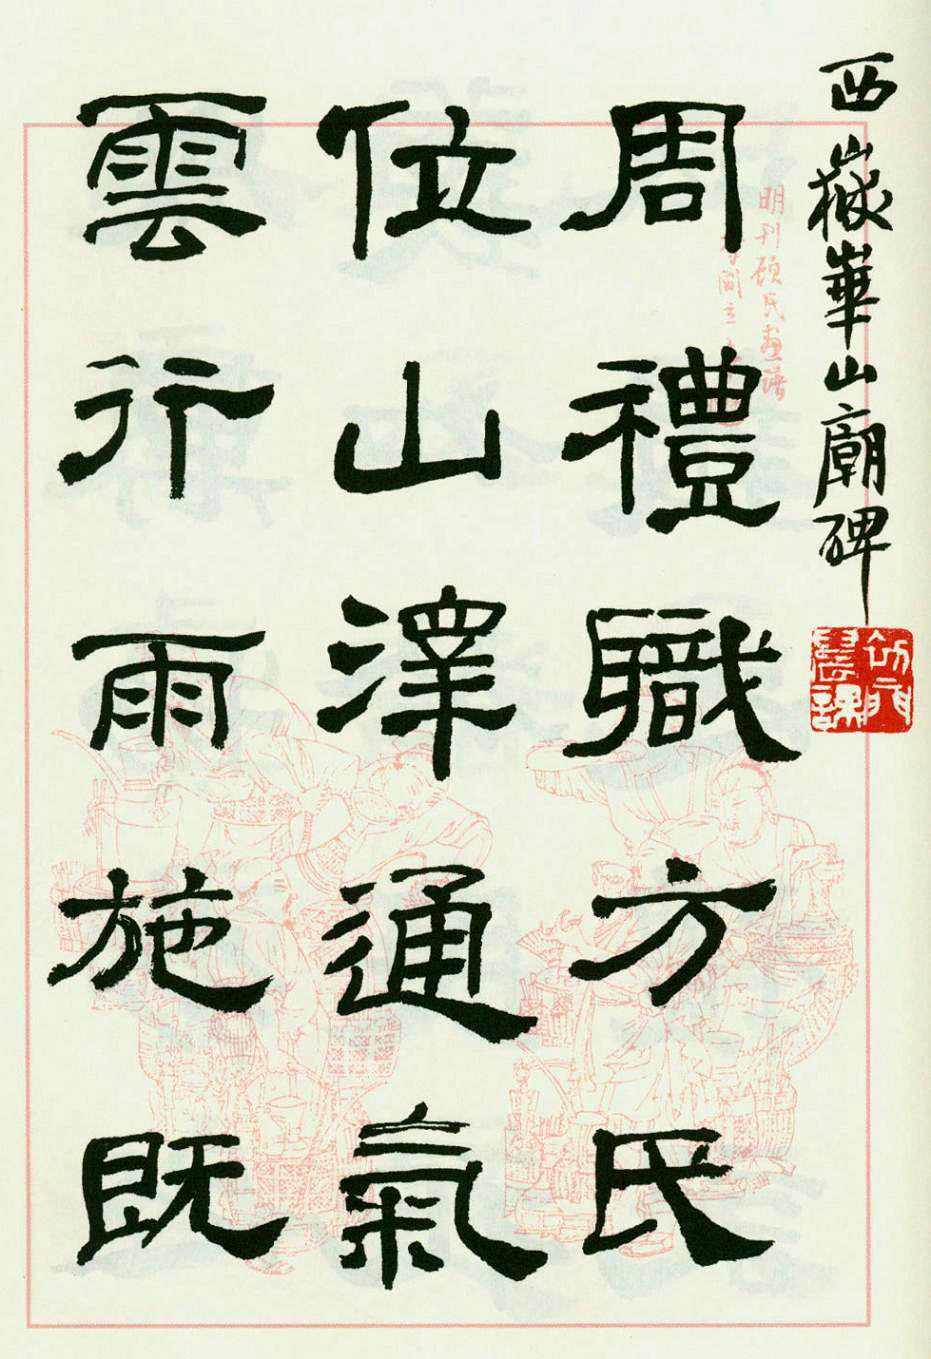 西嶽崋山廟碑
明刊顧氏畫譜
周禮職方氏
位山澤通氣
雲行雨施既